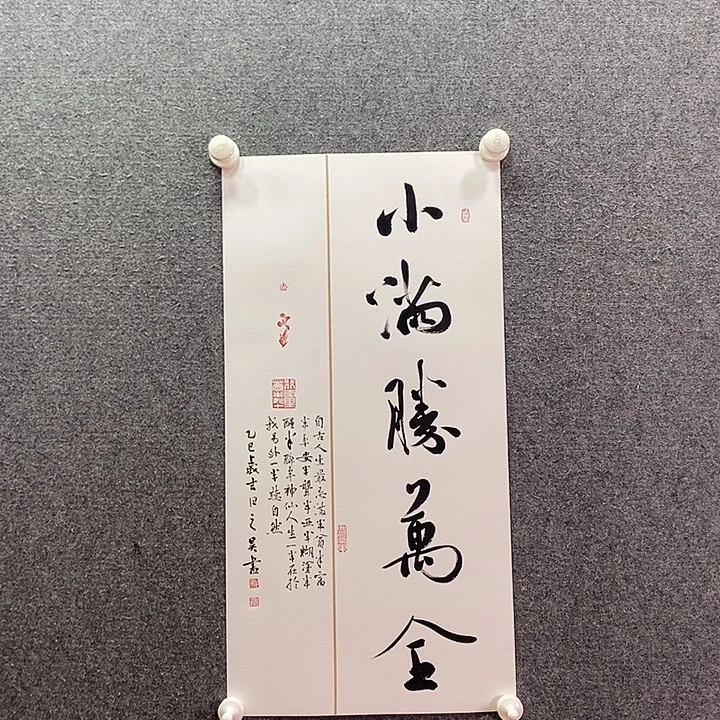 小满勝萬全
自古人生最忌满半貧半富
半平安半聾半亞半糊塗半
醒半醉半神仙人生一半在於
我另外一半聽自然
乙巳歲吉日之吴書